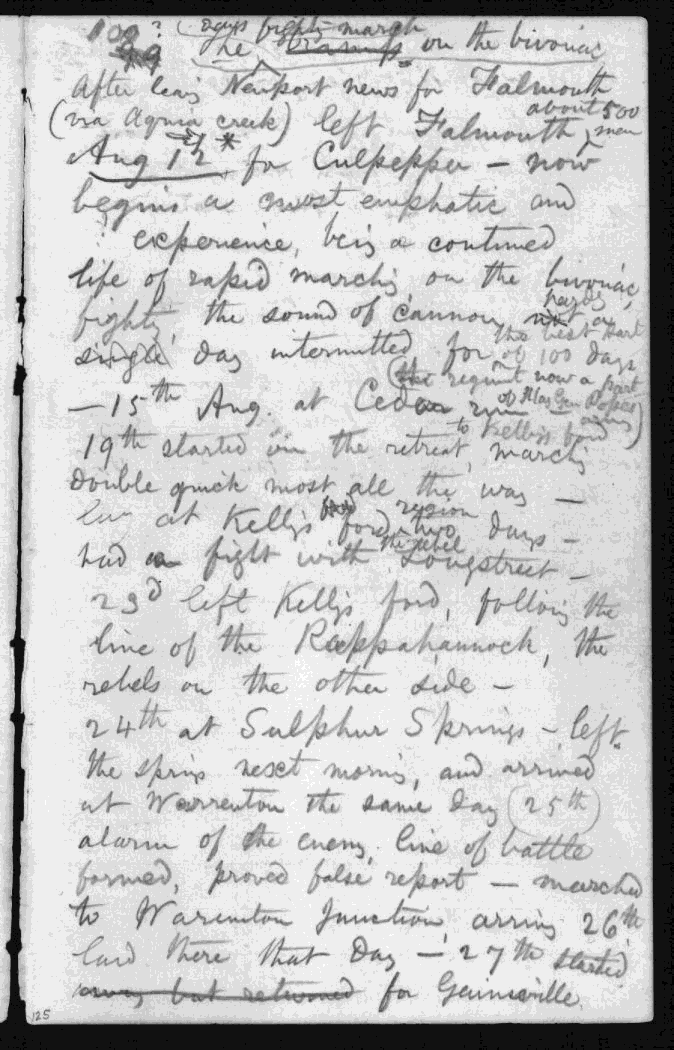 109? (days fights march
99 he on the bivouac
After leavig Newport news for Falmouth
(via Aquia creek) left Falmouth, about 500 men
Aug 12th * for Culpepper – now
begins a most emphatic and
experience, beig a contined
life of rapid marchig on the bivouac,
fightig, the sound of cannon, not a hardly
single day intermitted for the best part of 100 days
(the regimt now a part of Maj Gen Popes army)
– 15th Aug. at Cedar run
19th started in the retreat, marchig to Kellys ford
double quick most all the way –
at Kellys ford region two days –
had a fight with the rebel Longstreet –
23d left Kellys ford, followig the
line of the Rappahannock, the
rebels on the other side –
24th at Sulphur Springs – left
the sprigs next mornig, and arrived
at Warrenton the same day (25th)
alarm of the enemy, line of battle
formed, proved false report – marched
to Warrenton Junction, arrivg 26th
laid there that day – 27th started
away but returned for Gainsville.
125